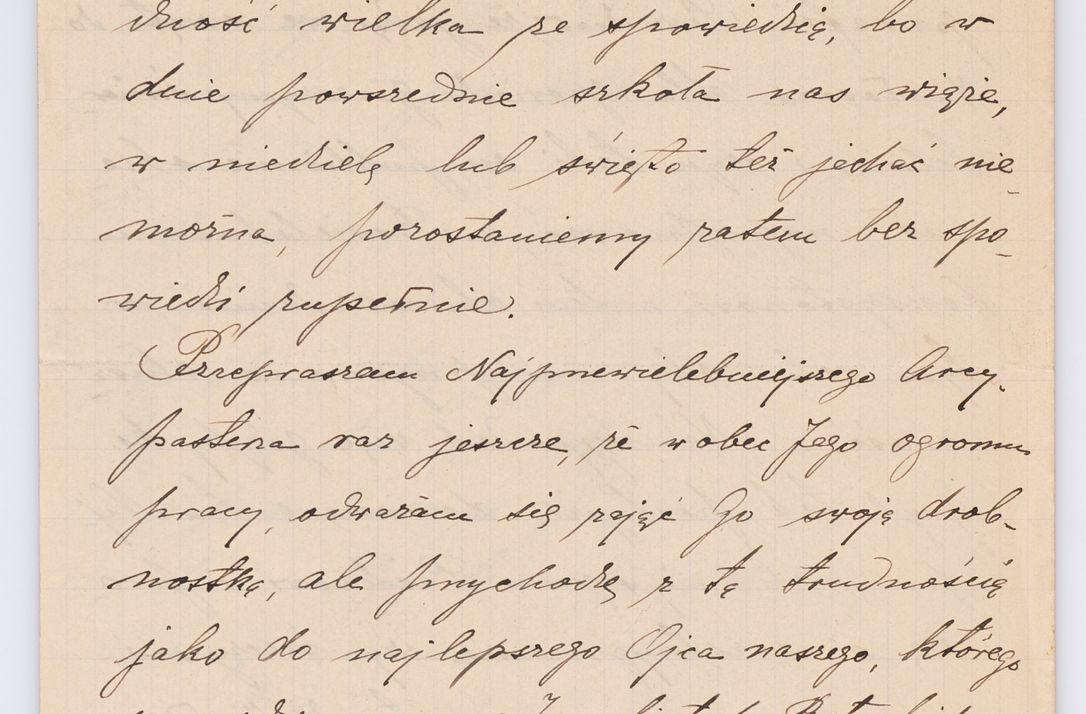 dność wielka ze spowiedzią, bo w
dnie powszednie szkoła nas wiąże,
w niedzielę lub święto też jechać nie-
można, pozostaniemy zatem bez spo-
wiedzi zupełnie.
Przepraszam Najprzewielebniejszego Arcy-
pasterza raz jeszcze, że wobec Jego ogromu
pracy, odważam się zająć Go swoją drob-
nostką, ale przychodzę z tą trudnością
jako do najlepszego Ojca naszego, którego